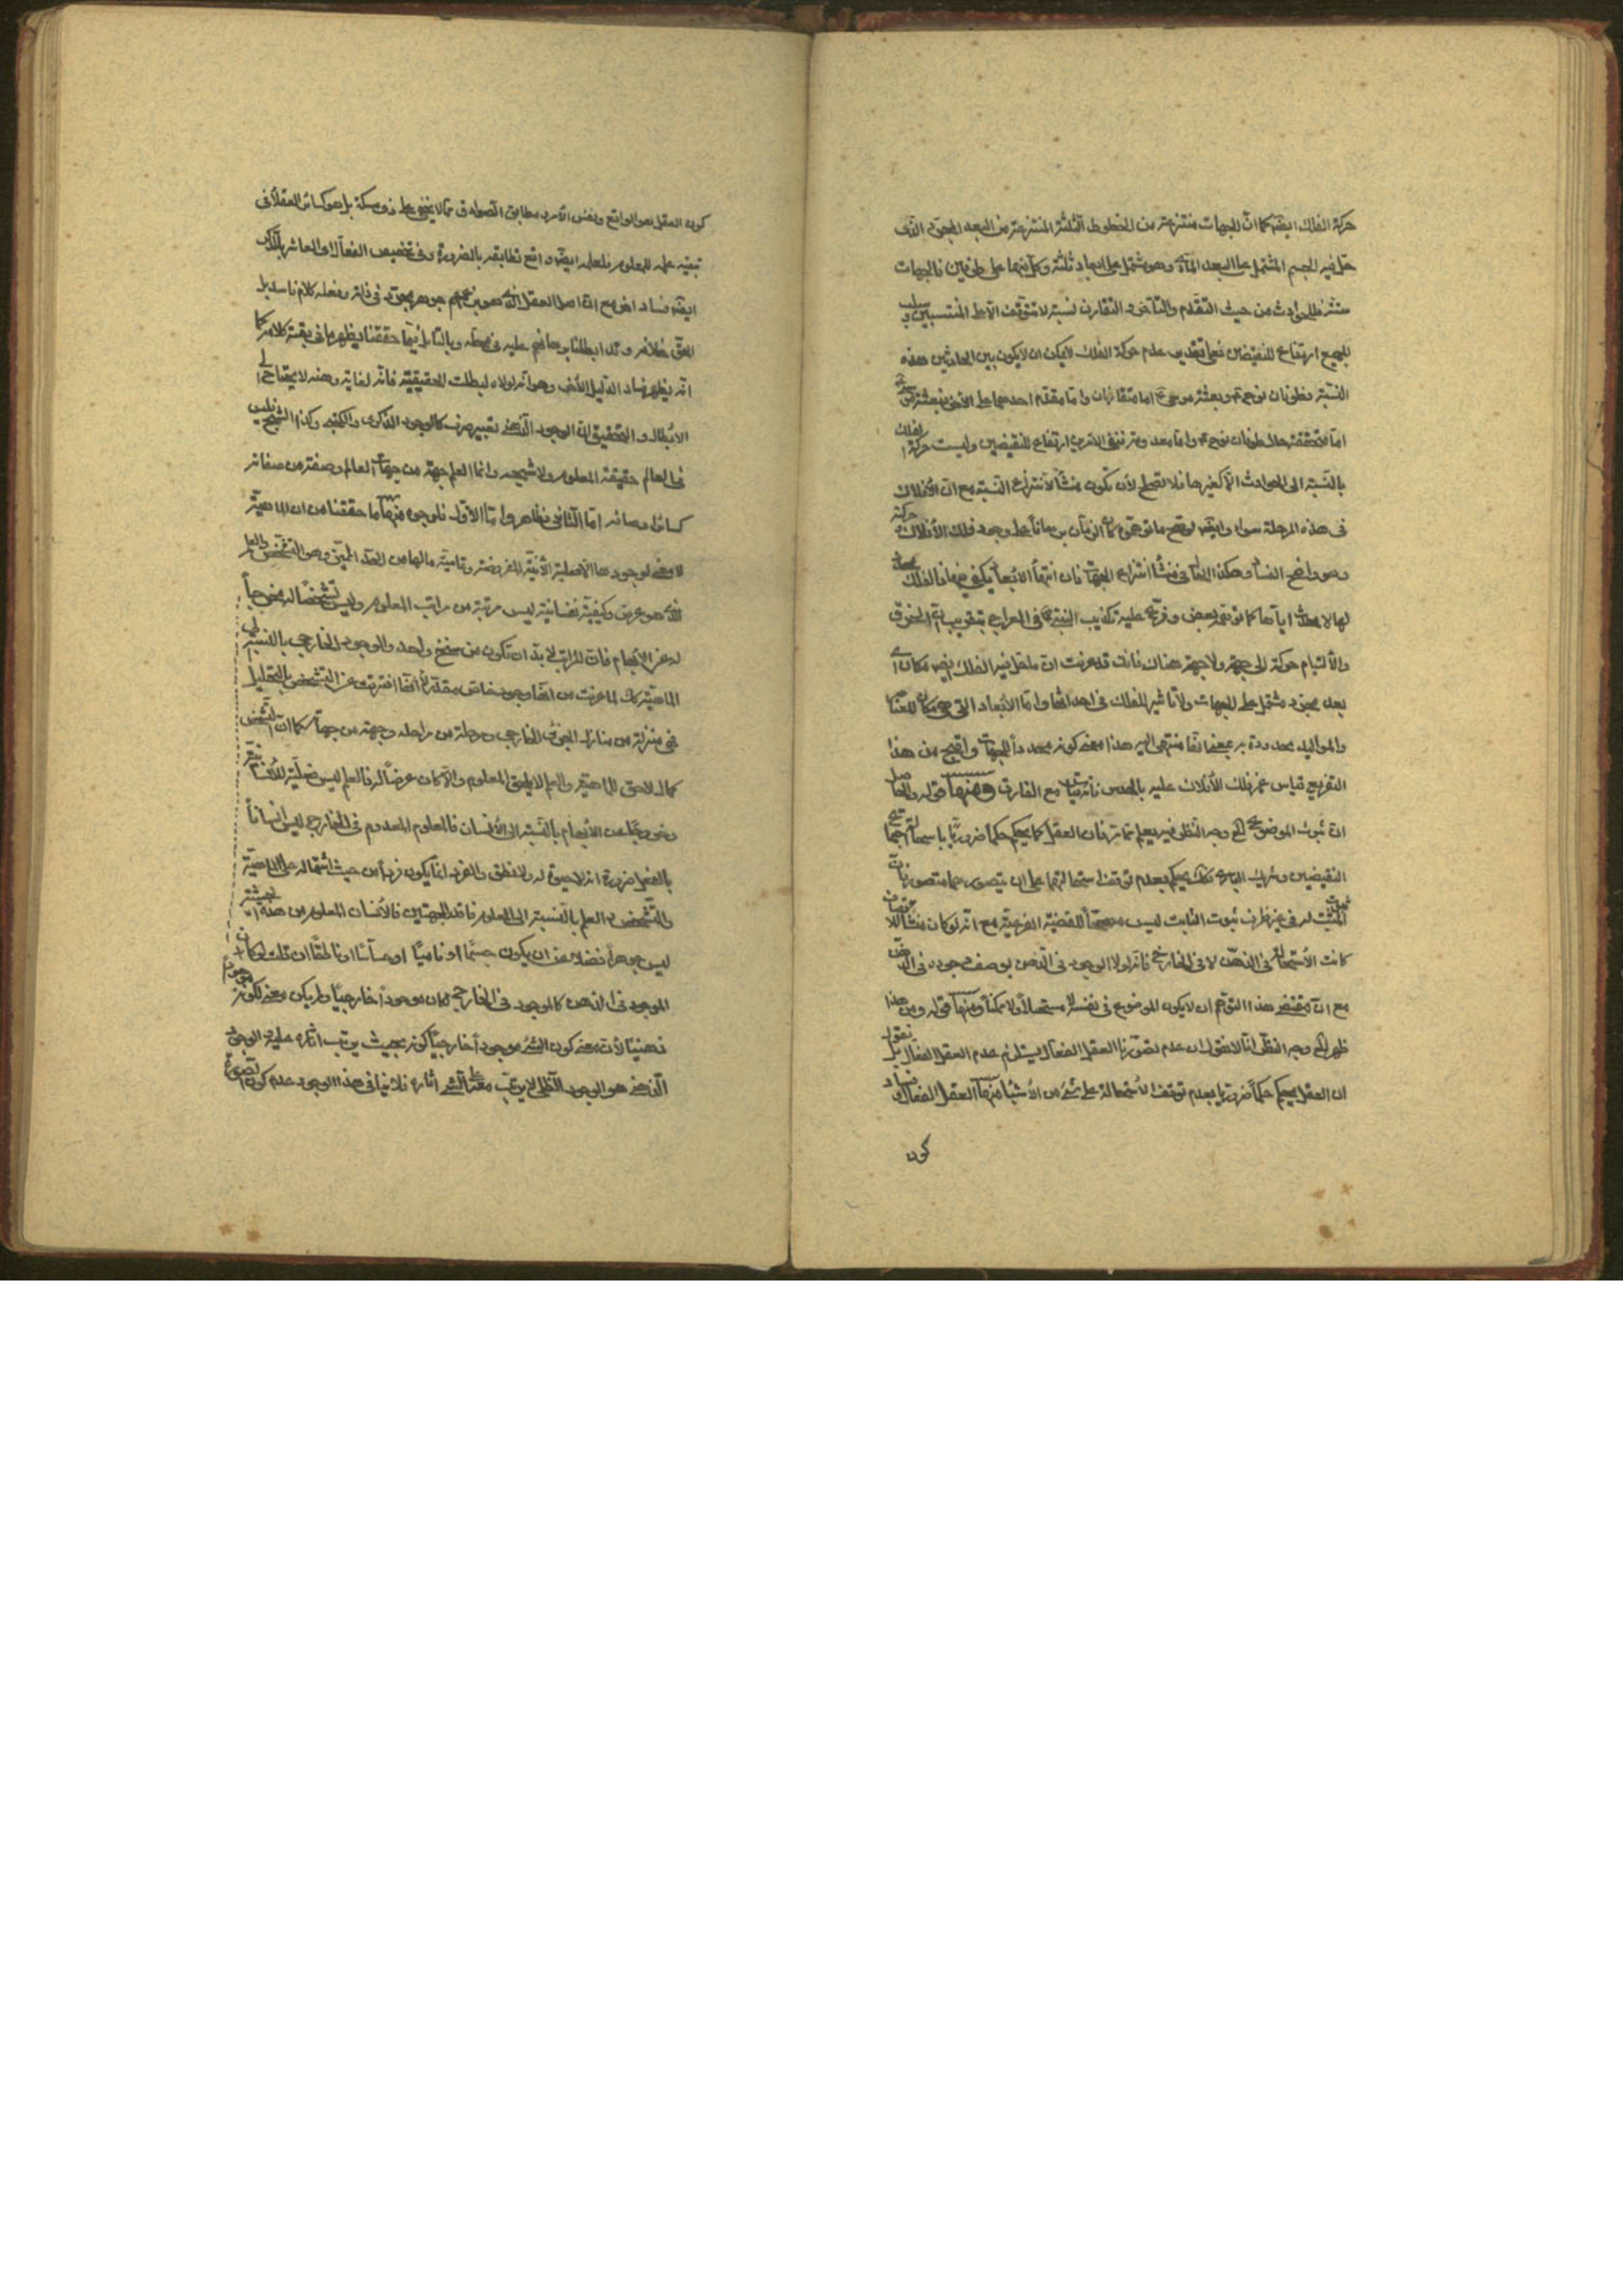 حركة الفلك ايضا كما ان الجهات منتزعة من الخطوط الثلثة المنتزعة من البعد المجرد الذى
حل فيه الجسم المشتمل على البعد المادى وهو مشتمل على ابعاد ثلثة وكل منها على طرفين فالجهات
ستة فالحوادث من حيث التقدم والتأخر والتقارن نسبة لا تتوقف الا على المنتسبين وسلب
الجميع ارتفاع للنقيضين فعلى تقدير عدم حركة الفلك لا يمكن ان لا يكون بين الحادثين هذه
النسبة فطوفان نوح وبعثة موسى اما متقارنان واما متقدم احدهما على الاخر فبعثة موسى
اما متحققة حال طوفان نوح واما بعد ونفى الامرين ارتفاع للنقيضين وليست حركة الفلك
بالنسبة الى الحوادث الا كغيرها فلا تصلح لأن تكون منشأ لانتزاع النسبة مع ان الافلاك
فى هذه المرحلة سواء وايضا
وهو واضح الفساد وهكذا الحال فى منشأ انتزاع الجهات فان انتهاء الابعاد يكفى فيها فالفلك
لها لا محدث اياها كما توهمه بعض وفرع عليه تكذيب النبى فى المعراج بتقريب الخرق
والالتيام حركة الى جهة ولا جهة هناك فانت قد عرفت ان ما حل فيه الفلك ايضا مكان اى
بعد مجرد مشتمل على الجهات ولا تأثير للفلك فى احداثها واما الابعاد التى هى مكان للعناصر
والمواليد محدودة به بمعنى انها منتهى اليه هذا معنى كونه محددا للجهات واقبح من هذا
التفريع قياس غير فلك الأفلاك عليه بالحدس فانه قياس مع الفارق ومنها قوله والحاصل
ان ثبوت الموضوع الخ وجه النظر فيه يعلم مما مر فان العقل كما يحكم حكما ضروريا باستحالة اجتماع
النقيضين وشريك البارى كذلك يحكم بعدم توقف استحالتهما على ان يتصورهما متصور
المثبت له فى غير ظرف ثبوت الثابت ليس مصححا للقضية الفرعية مع انه لو كان منشأ
كانت الأستحالة فى الذهن لا فى الخارج فانه لولا الوجود فى الذهن لم يوصف بوجوده فى الذهن
مع ان مقتضى هذا التوهم ان لا يكون الموضوع فى نفسه لا مستحيلا ولا ممكنا ومنها قوله ومن هذا
ظهر الخ وجه النظر انا لا نقول ان عدم تصورنا العقل الفعال يستلزم عدم العقل الفعال بل نقول
ان العقل يحكم حكما ضروريا بعدم توقف الاستحالة على شىء من الأشياء منها العقل الفعال وفساد
كون
كون العقل هو الواقع ونفس الأمر ومطابق الصوادق مما لا يخفى على ذى مسكة بل هو كسائر العقلاء فى
تبعية علمه للمعلوم فلعلمه ايضا واقع تطابقه بالضرورة وفى تخصيص الفعال اى العاشر بالذكر
ايضا فساد اخر مع ان اصل العقل الذى هو بزعمهم جوهر مجرد فى ذاته وفعله كلام فاسد بل
الحق خلافه وقد ابطلنا براهينهم عليه فى محله وبالتأمل فيما حققنا يظهر ما فى بقية كلامه كما
انه يظهر فساد الدليل الأخر وهو انه لولاه لبطلت الحقيقية فانه لغايته وهنه لا يحتاج الى
الابطال والتحقيق ان الوجود الذهنى تعبير صرف كالوجود الذكرى والكتبى وكذا الشبح فليس
فى العالم حقيقة المعلوم ولا شبحه وانما العلم جهة من جهات العالم وصفة من صفاته
كسائر اوصافه اما الثانى فظاهر واما الأول فلوجوه منها ما حققنا من ان الماهية
لا معنى لوجودها الا فعلية الأنية المفروضة وتمامية مالها من الحد المميز وهو التشخص والعلم
الذى هو عرض وكيفية نفسانية ليس مرتبة من مراتب المعلوم وليس تشخصا له مخرجا
له عن الأبهام فان المراتب لا بد ان تكون من سنخ واحد والوجود الخارجى بالنسبة الى
الماهية كك لما عرفت من انها وجود خاص مقدر انها افترقت عن التشخص بالتحليل
فهى منزلة من منازل الجزئى الخارجى ومرحلة من مراحله وجهة من جهاته كما ان التشخص
كمال لاحق للماهية والعلم لا يلحق المعلوم والا كان عرضا له فالعلم ليس فعلية للأنسانية
وخروجا عن الأبهام بالنسبة الى الأنسان فالمعلوم المعدوم فى الخارج ليس انسانا
بالفعل ضرورة انه لا حيوة له ولا نطق والفرد انما يكون فردا من حيث اشتماله على الماهية
والتشخص والعلم بالنسبة الى المعلوم فاقد للجهتين فالأنسان المعلوم من هذه الحيثية
ليس جوهرا فضلا عن ان يكون جسما او ناميا او حساسا او ناطقا ان قلت لو كان
الموجود فى الذهن كالموجود فى الخارج لكان موجودا خارجيا ولم يكن معنى لكونه موجودا
ذهنيا لأن معنى كون الشىء موجودا خارجيا كونه بحيث يترتب اثاره عليه والوجود
الذهنى هو الوجود الظلى لا يترتب معه على الشىء اثاره فلا ينافى هذا الوجود عدم كون